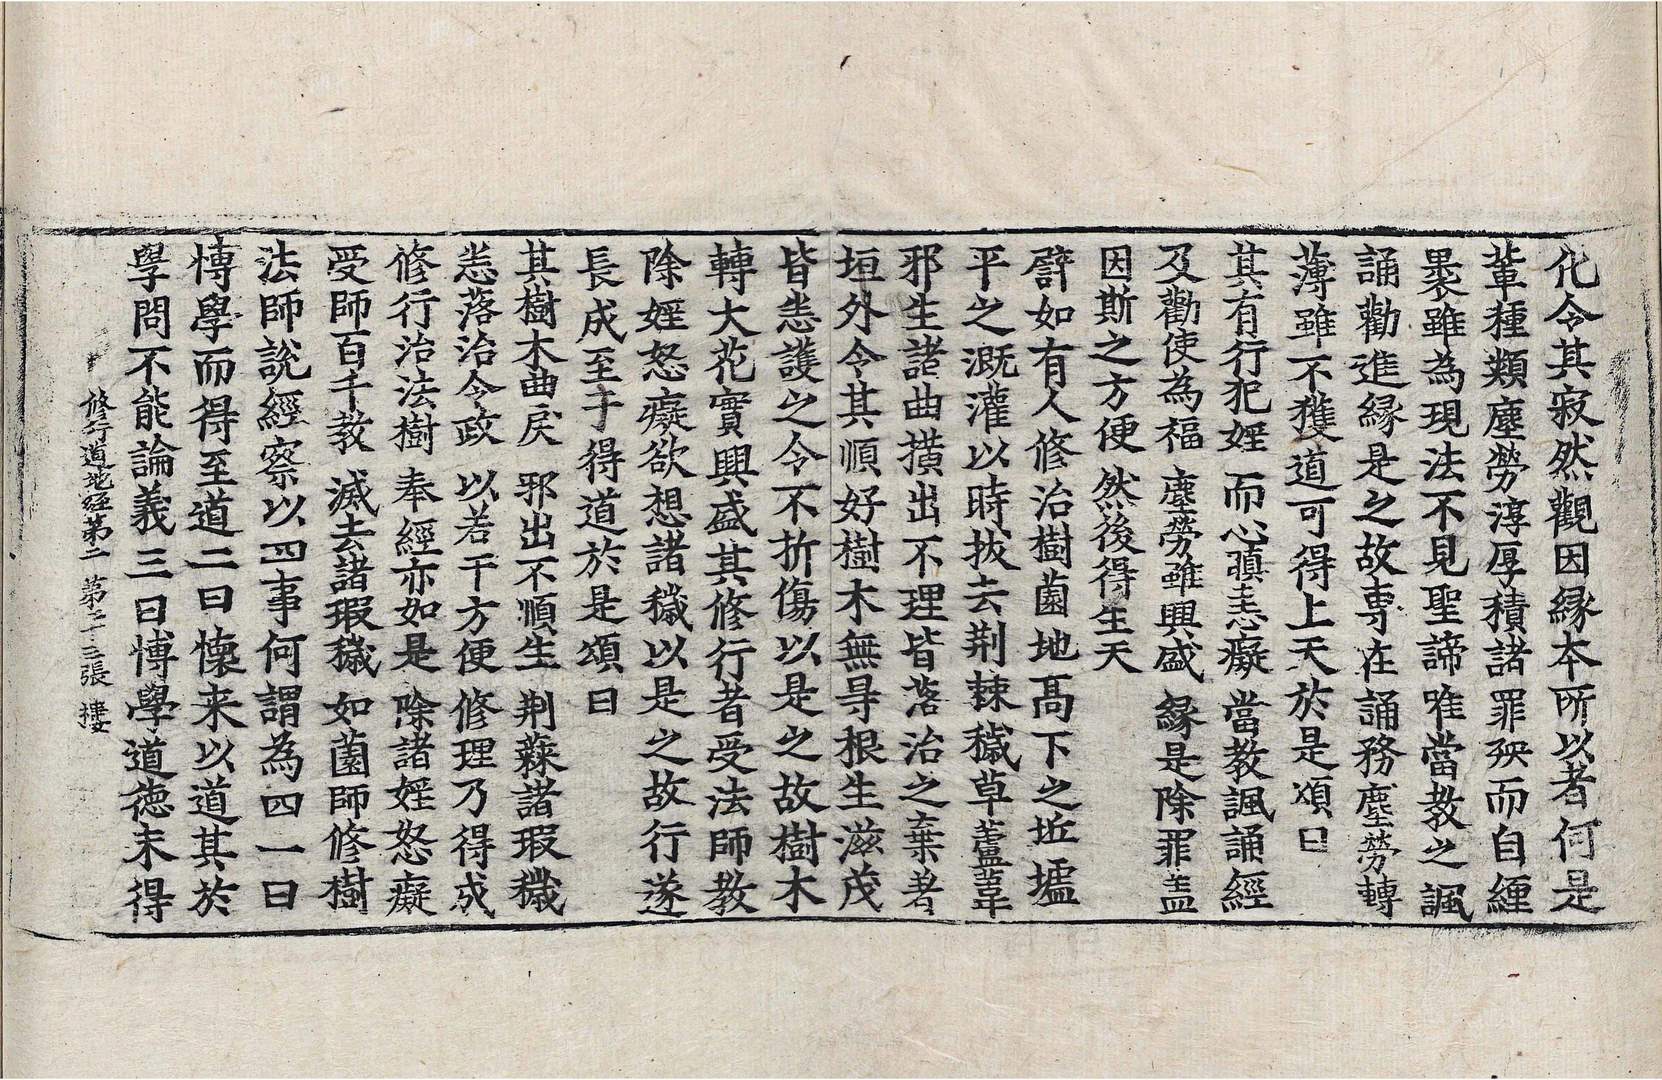 化令其寂然觀因緣本所以者何是
輩種類塵勞淳厚積諸罪殃而自纏
裹雖為現法不見聖諦唯當教之諷
誦勸進緣是之故專在誦務塵勞轉
薄雖不獲道可得上天於是頌曰
其有行犯婬 而心瞋恚癡 當教諷誦經
及勸使為福 塵勞雖興盛 緣是除罪盖
因斯之方便 然後得生天
譬如有人修治樹園地高下之坵墟
平之溉灌以時拔去荆棘穢草蘆葦
邪生諸曲撗出不理皆落治之棄著
垣外令其順好樹木無㝵根生滋茂
皆恙護之令不折傷以是之故樹木
轉大花實興盛其修行者受法師教
除婬怒癡欲想諸穢以是之故行遂
長成至于得道於是頌曰
其樹木曲戾 邪出不順生 荆蕀諸瑕穢
恙落治令政 以若干方便 修理乃得成
修行治法樹 奉經亦如是 除諸婬怒癡
受師百千教 滅去諸瑕穢 如園師修樹
法師說經察以四事何謂為四一曰
愽學而得至道二曰懷来以道其於
學問不能論義三曰愽學道德未得
修行道地經第二 第二十三張 樓